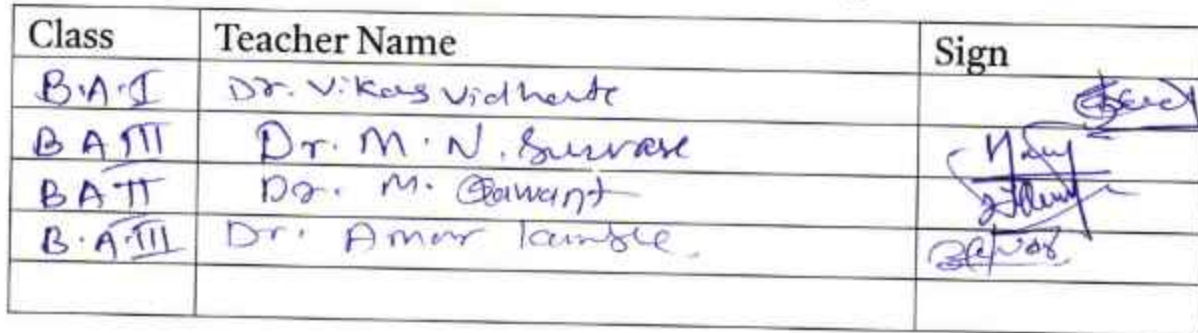 Class Teacher Name Sign
B.A.I Dr. Vikas Vidhate
B A III Dr. M. N. Survase
B A II Dr. M. Gawant
B.A.III Dr. Amar Kamble